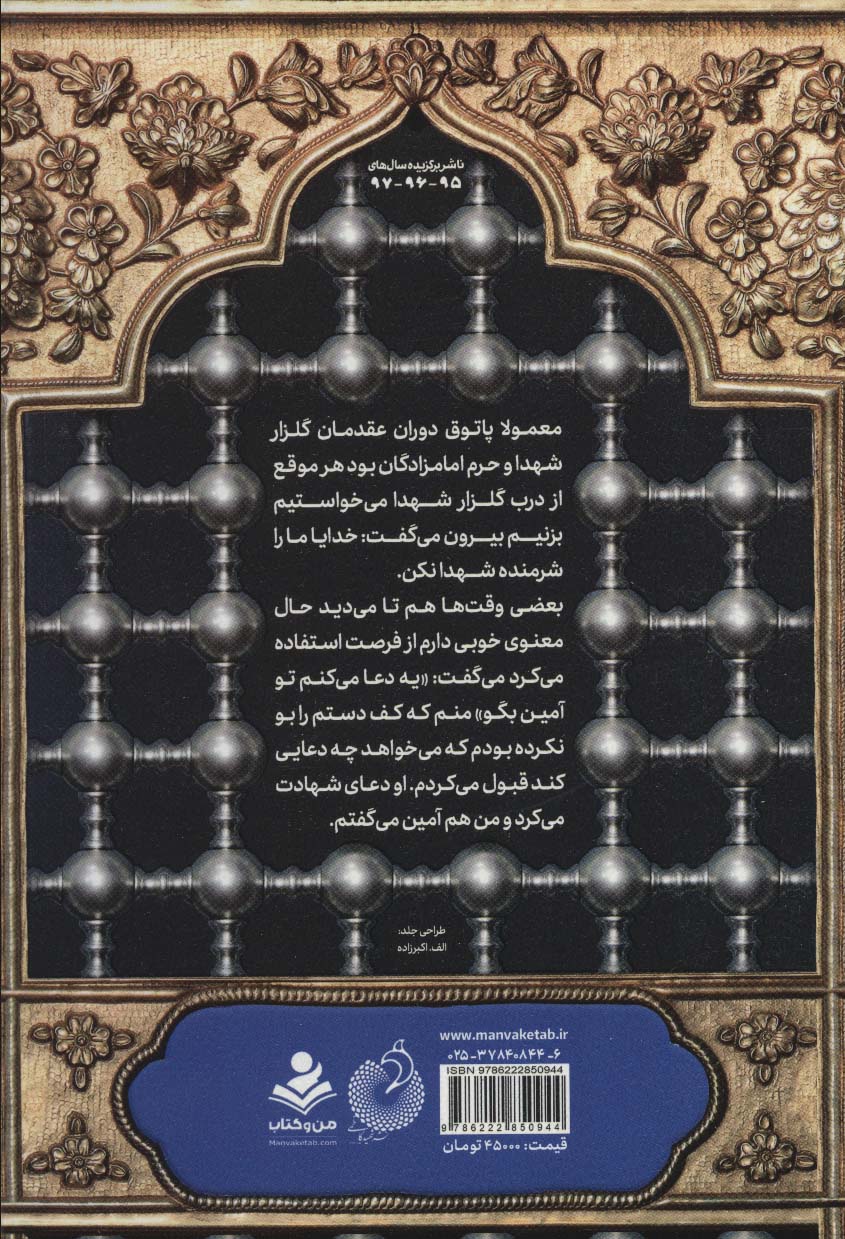 ناشر برگزیده سال‌های
۹۵-۹۶-۹۷
معمولا پاتوق دوران عقدمان گلزار
شهدا و حرم امامزادگان بود هر موقع
از درب گلزار شهدا می‌خواستیم
بزنیم بیرون می‌گفت: خدایا ما را
شرمنده شهدا نکن.
بعضی وقت‌ها هم تا می‌دید حال
معنوی خوبی دارم از فرصت استفاده
می‌کرد می‌گفت: «یه دعا می‌کنم تو
آمین بگو» منم که کف دستم را بو
نکرده بودم که می‌خواهد چه دعایی
کند قبول می‌کردم. او دعای شهادت
می‌کرد و من هم آمین می‌گفتم.
طراحی جلد:
الف. اکبرزاده
www.manvaketab.ir
۰۲۵-۳۷۸۴۰۸۴۴-۶
ISBN 9786222850944
9 786222 850944
قیمت: ۴۵۰۰۰ تومان
من و کتاب
Manvaketab.com